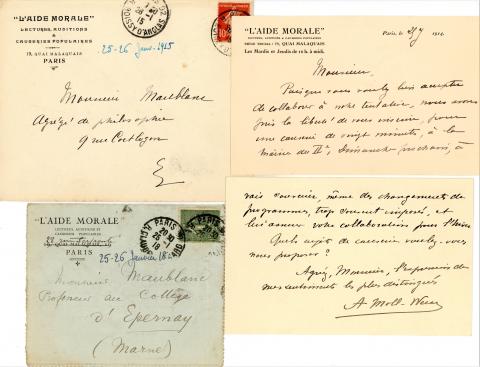 "L'AIDE MORALE"
LECTURES, AUDITIONS
&
CAUSERIES POPULAIRES
19, QUAI MALAQUAIS
PARIS
25-26 Janv. 1915
Monsieur Maublanc
Agrégé de philosophie
9 rue Coëtlogon
E/
"L'AIDE MORALE"
LECTURES, AUDITIONS & CAUSERIES POPULAIRES
SIÈGE SOCIAL : 19, QUAI MALAQUAIS
Les Mardis et Jeudis de 10 h. à midi.
Paris, le
Monsieur,
Puisque vous voulez bien accepter
de collaborer à notre tentative, nous avons
pris la liberté de vous inscrire, pour
une causerie de vingt minutes, à la
mairie du II^e, Dimanche prochain, à
"L'AIDE MORALE"
LECTURES, AUDITIONS ET
CAUSERIES POPULAIRES
PARIS
25-26 Janvier 18
Monsieur Maublanc
Professeur au Collège
d'Epernay
(Marne)
même des changements de
programmes, trop souvent imposés, et
votre collaboration pour l'heure
Quels sujets de causeries voulez-vous
nous proposer ?
Agréez, Monsieur, l'expression de
mes sentiments les plus distingués
A. Moll-Weiss